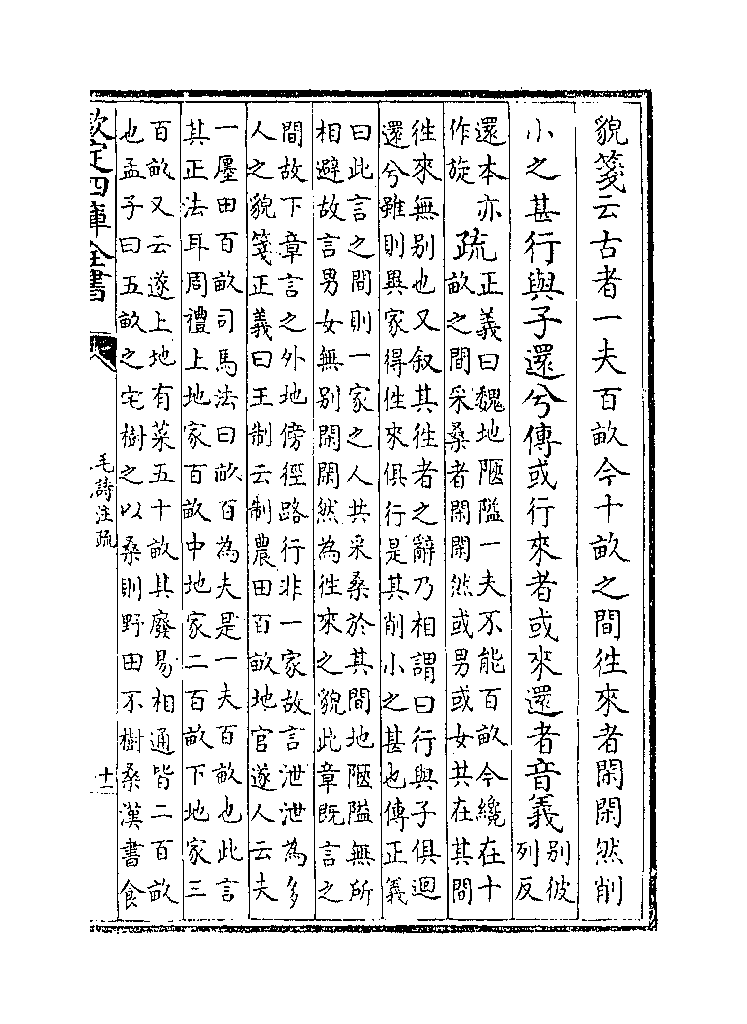 貌箋云古者一夫百畝今十畝之間徃來者閑閑然削
小之甚行與子還兮傳或行來者或來還者音義
別彼
列反
還本亦
作旋
疏
正義曰魏地陋隘一夫不能百畝今纔在十
畝之間采桑者閑閑然或男或女共在其間
徃來無别也又叙其徃者之辭乃相謂曰行與子俱迴
還兮雖則異家得徃來俱行是其削小之甚也傳正義
曰此言之間則一家之人共采桑於其間地陋隘無所
相避故言男女無别閑閑然為徃來之貌此章既言之
間故下章言之外地傍徑路行非一家故言泄泄為多
人之貌箋正義曰王制云制農田百畝地官遂人云夫
一廛田百畝司馬法曰畝百為夫是一夫百畝也此言
其正法耳周禮上地家百畝中地家二百畝下地家三
百畝又云遂上地有萊五十畝其廢易相通皆二百畝
也孟子曰五畝之宅樹之以桑則野田不樹桑漢書食
欽定四庫全書
毛詩注疏
十二